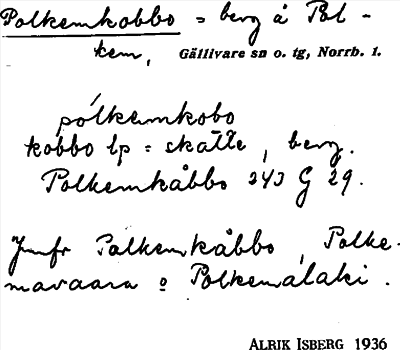 Polkemkobbo = berg å Pol-
kem, Gällivare sn o. tg, Norrb. l.
pólkemkobo
kobbo lp = skatte, berg.
Polkemkåbbo 243 G 29.
Jmfr Palkemkåbbo, Polke-
mavaara o Polkemalaki.
ALRIK ISBERG 1936